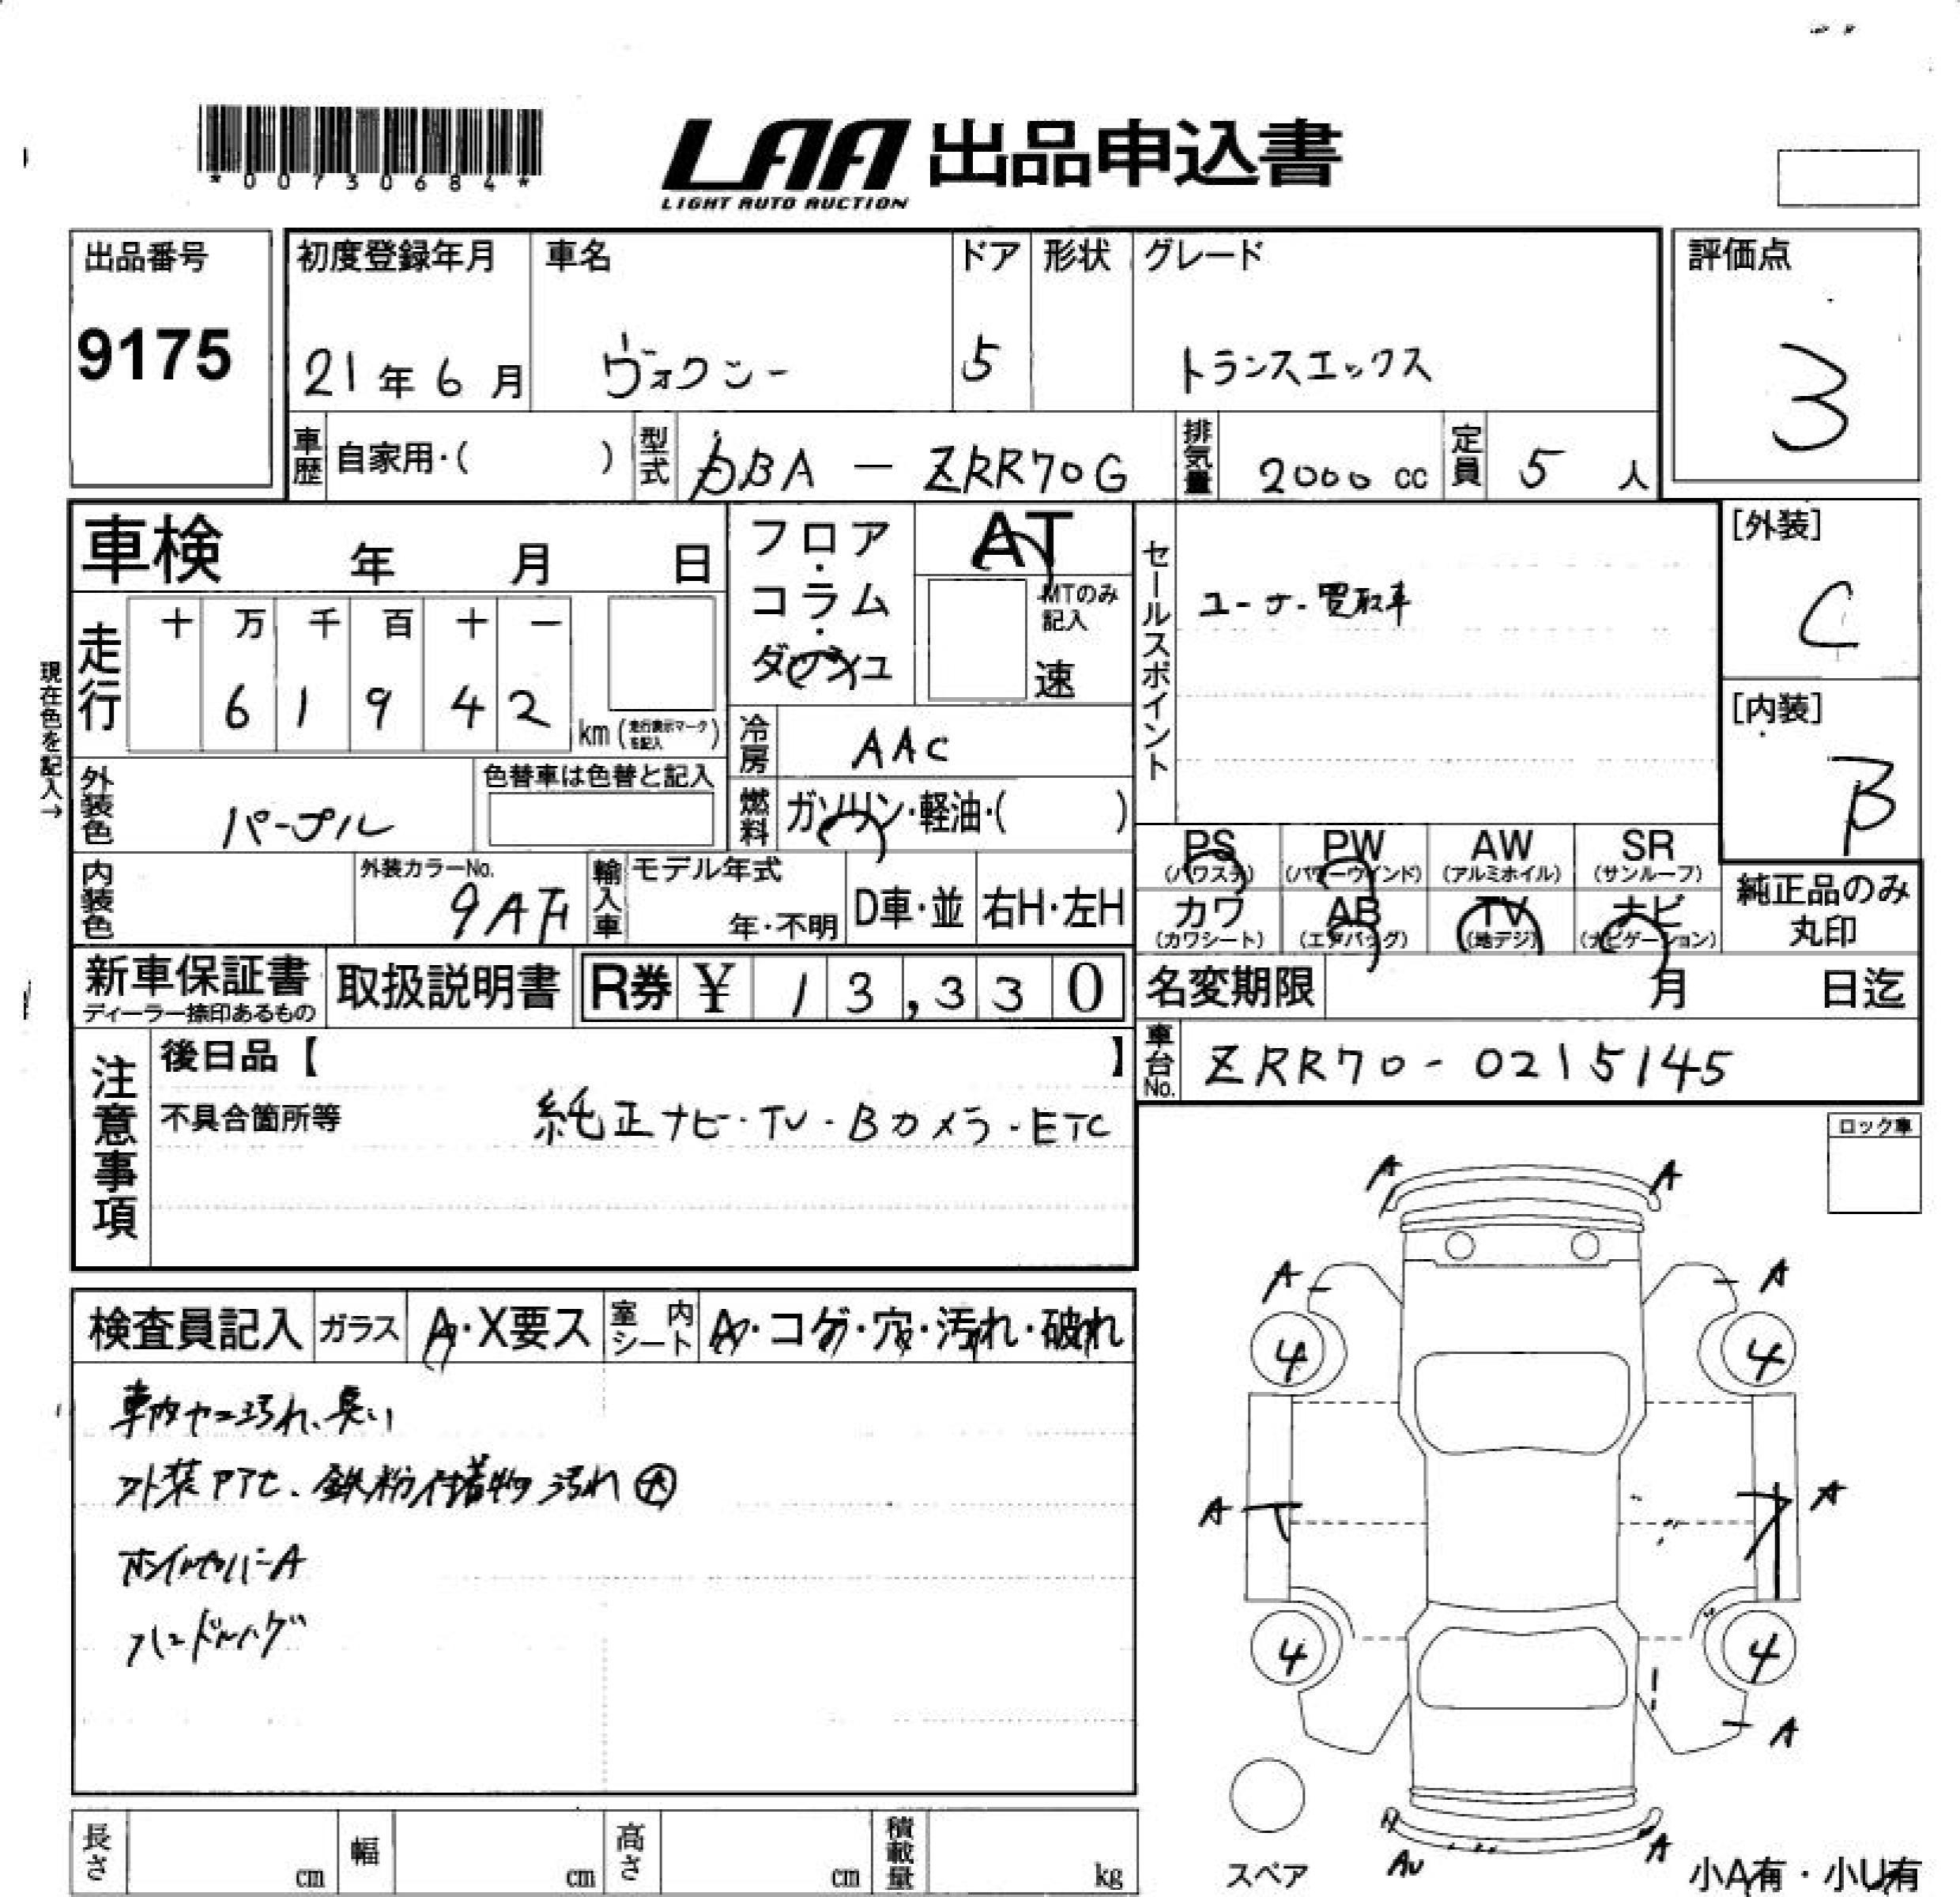 *00730684*
LAA 出品申込書
LIGHT AUTO AUCTION
出品番号
9175
初度登録年月
21年6月
車名
ヴォクシー
ドア
5
形状
グレード
トランスエックス
評価点
3
車歴
自家用・( )
型式
DBA － ZRR70G
排気量
2000 cc
定員
5 人
車検 年 月 日
フロア・コラム・ダッシュ
AT
MTのみ記入
速
セールスポイント
ユーザー買取車
[外装]
C
[内装]
B
現在色を記入→
走行
十 万 千 百 十 一
6 1 9 4 2
km (走行表示マークを記入)
冷房
AAC
外装色
パープル
色替車は色替と記入
燃料
ガソリン・軽油・( )
内装色
外装カラーNo.
9AH
輸入車
モデル年式
年・不明
D車・並
右H・左H
PS
(パワステ)
PW
(パワーウインド)
AW
(アルミホイル)
SR
(サンルーフ)
カワ
(カワシート)
AB
(エアバッグ)
TV
(地デジ)
ナビ
(ナビゲーション)
純正品のみ
丸印
新車保証書
ディーラー捺印あるもの
取扱説明書
R券 ¥ 13,330
名変期限 月 日迄
車台No.
ZRR70-0215145
注意事項
後日品【 】
不具合箇所等
純正ナビ・TV・Bカメラ・ETC
ロック車
検査員記入
ガラス
A・X要ス
室内シート
A・コゲ・穴・汚れ・破れ
車内ヤニ汚れ、臭い
外装アセ、鉄粉付着物汚れ大
ホイルカバーA
ハンドルハゲ
A A
A A
4 4
A A
4 4
A
AU A
スペア
小A有・小U有
長さ cm
幅 cm
高さ cm
積載量 kg